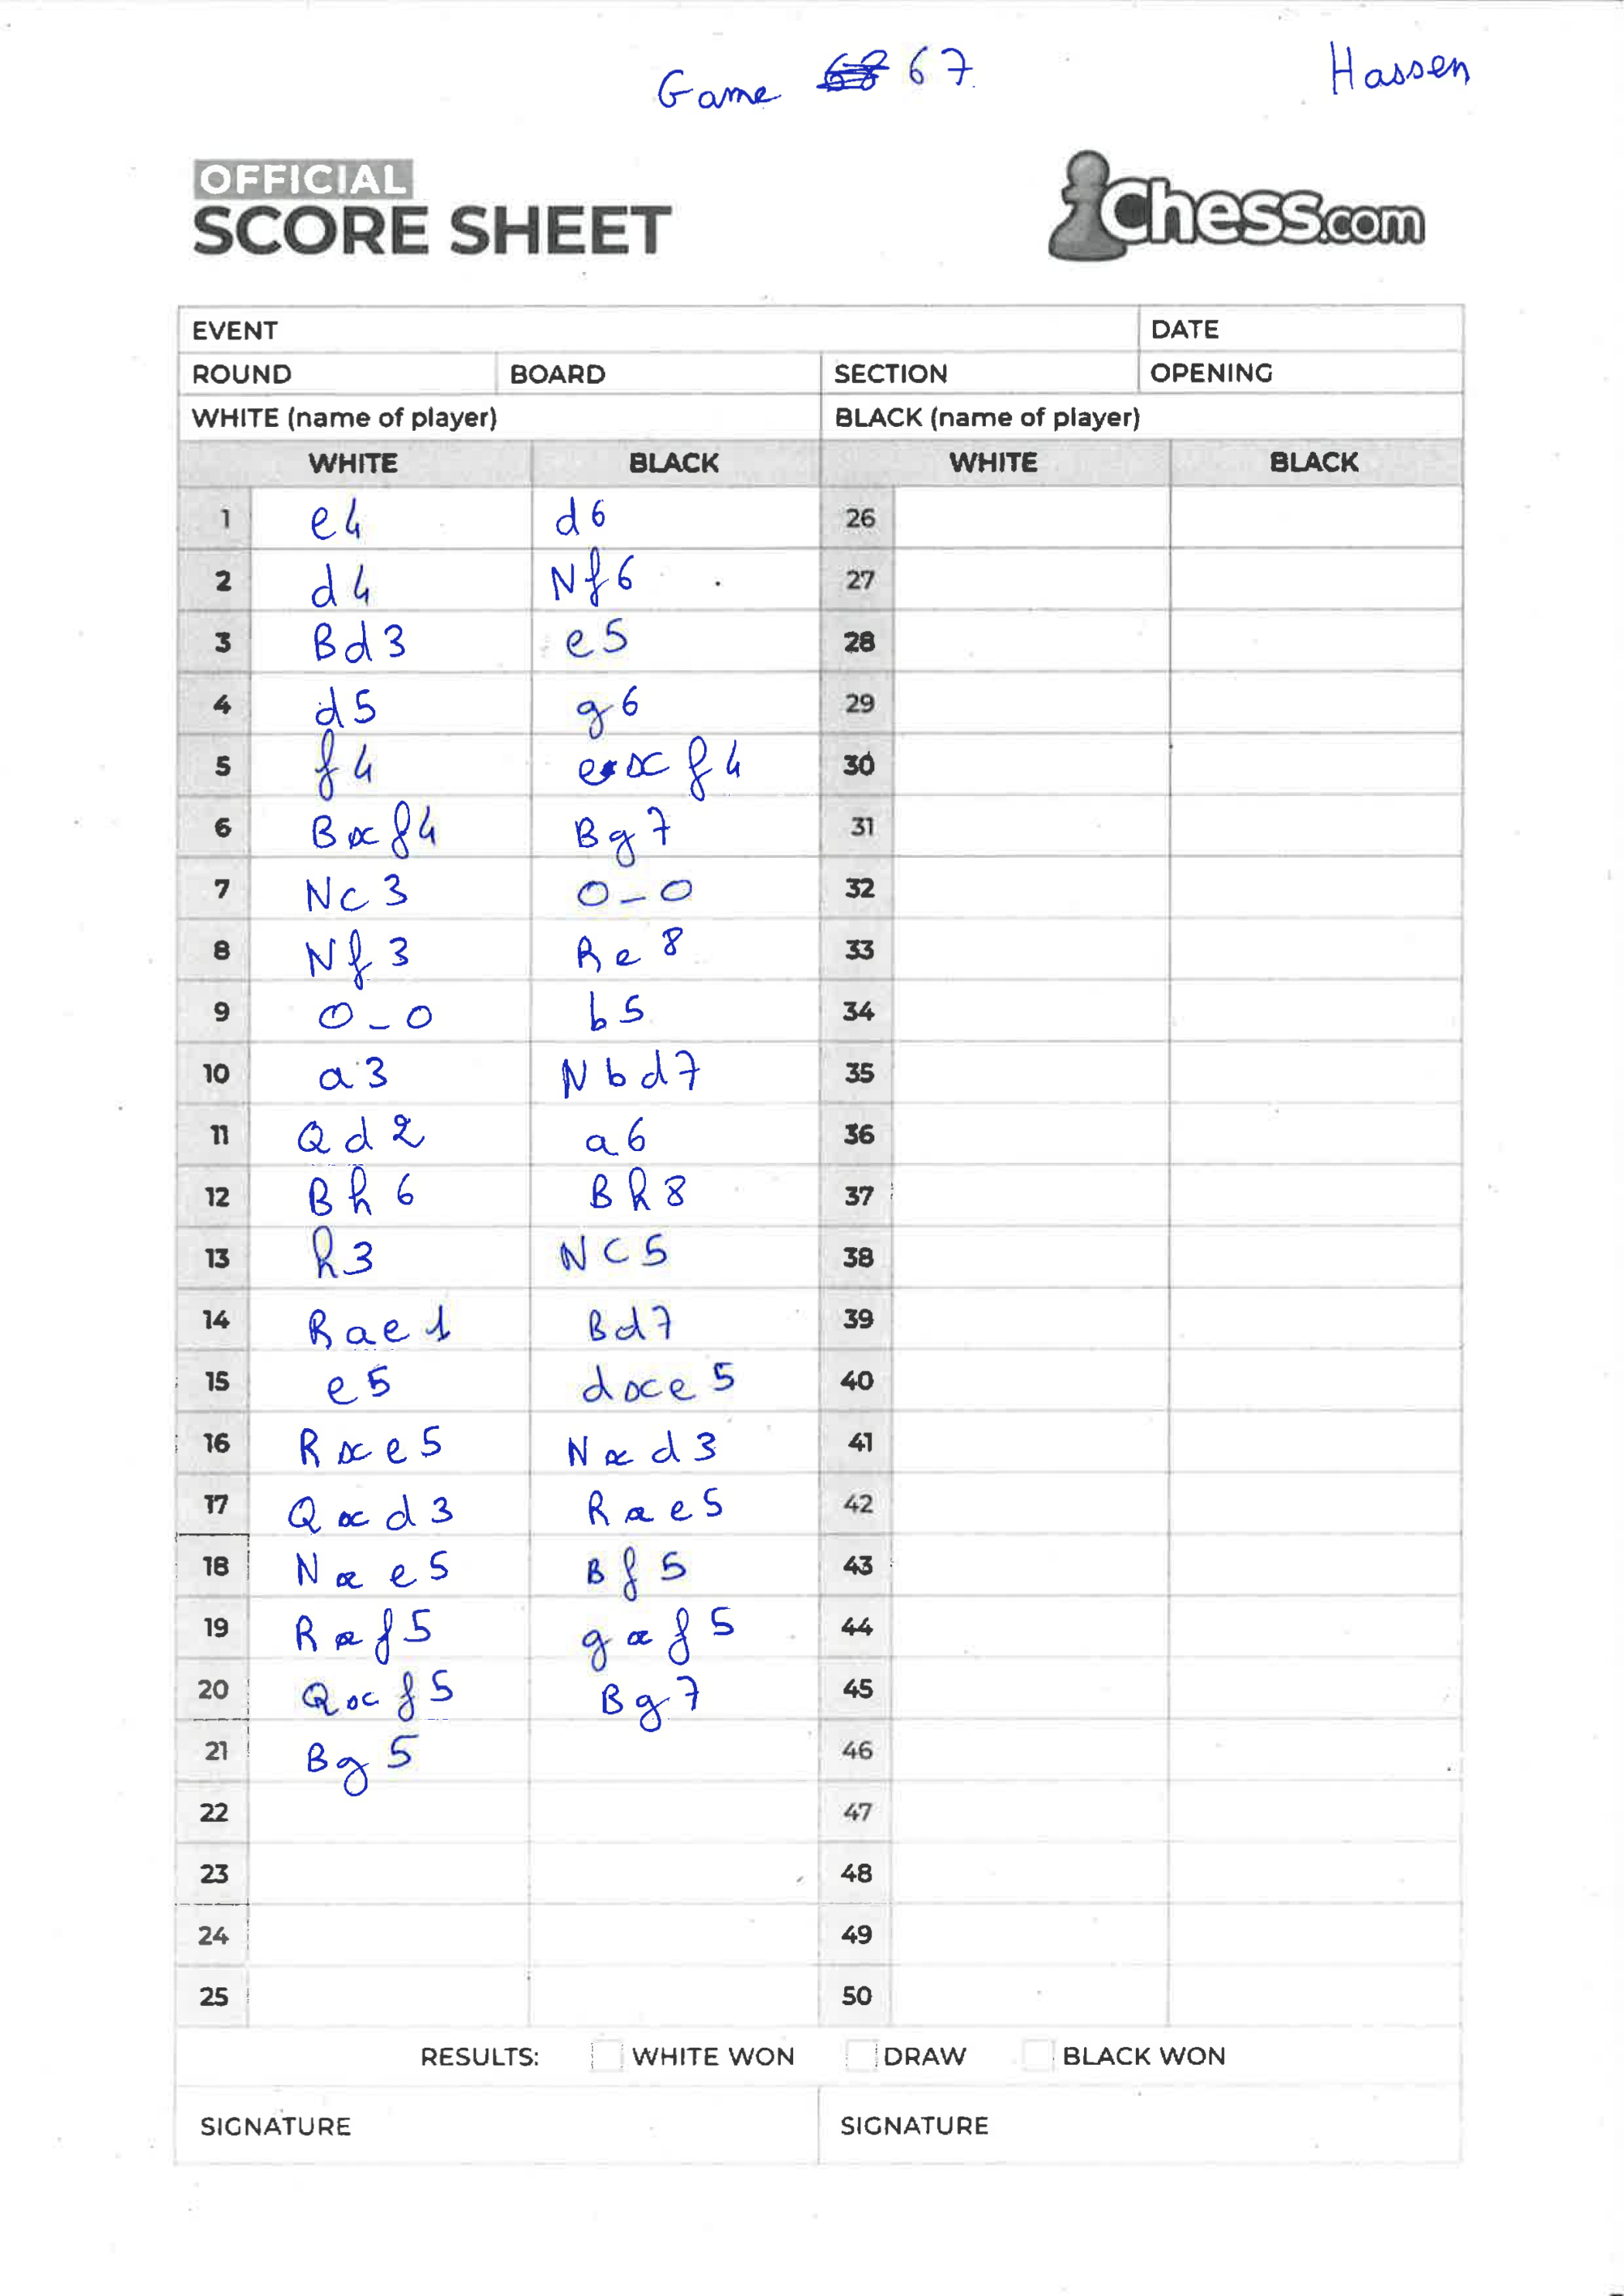 Game 67 Hassen
OFFICIAL
SCORE SHEET
Chess.com
EVENT DATE
ROUND BOARD SECTION OPENING
WHITE (name of player) BLACK (name of player)
WHITE BLACK WHITE BLACK
1 e4 d6 26
2 d4 Nf6 27
3 Bd3 e5 28
4 d5 g6 29
5 f4 exf4 30
6 Bxf4 Bg7 31
7 Nc3 O-O 32
8 Nf3 Re8 33
9 O-O b5 34
10 a3 Nbd7 35
11 Qd2 a6 36
12 Bh6 Bh8 37
13 h3 NC5 38
14 Rae1 Bd7 39
15 e5 dxe5 40
16 Rxe5 Nxd3 41
17 Qxd3 Rxe5 42
18 Nxe5 Bf5 43
19 Rxf5 gxf5 44
20 Qxf5 Bg7 45
21 Bg5 46
22 47
23 48
24 49
25 50
RESULTS: WHITE WON DRAW BLACK WON
SIGNATURE SIGNATURE